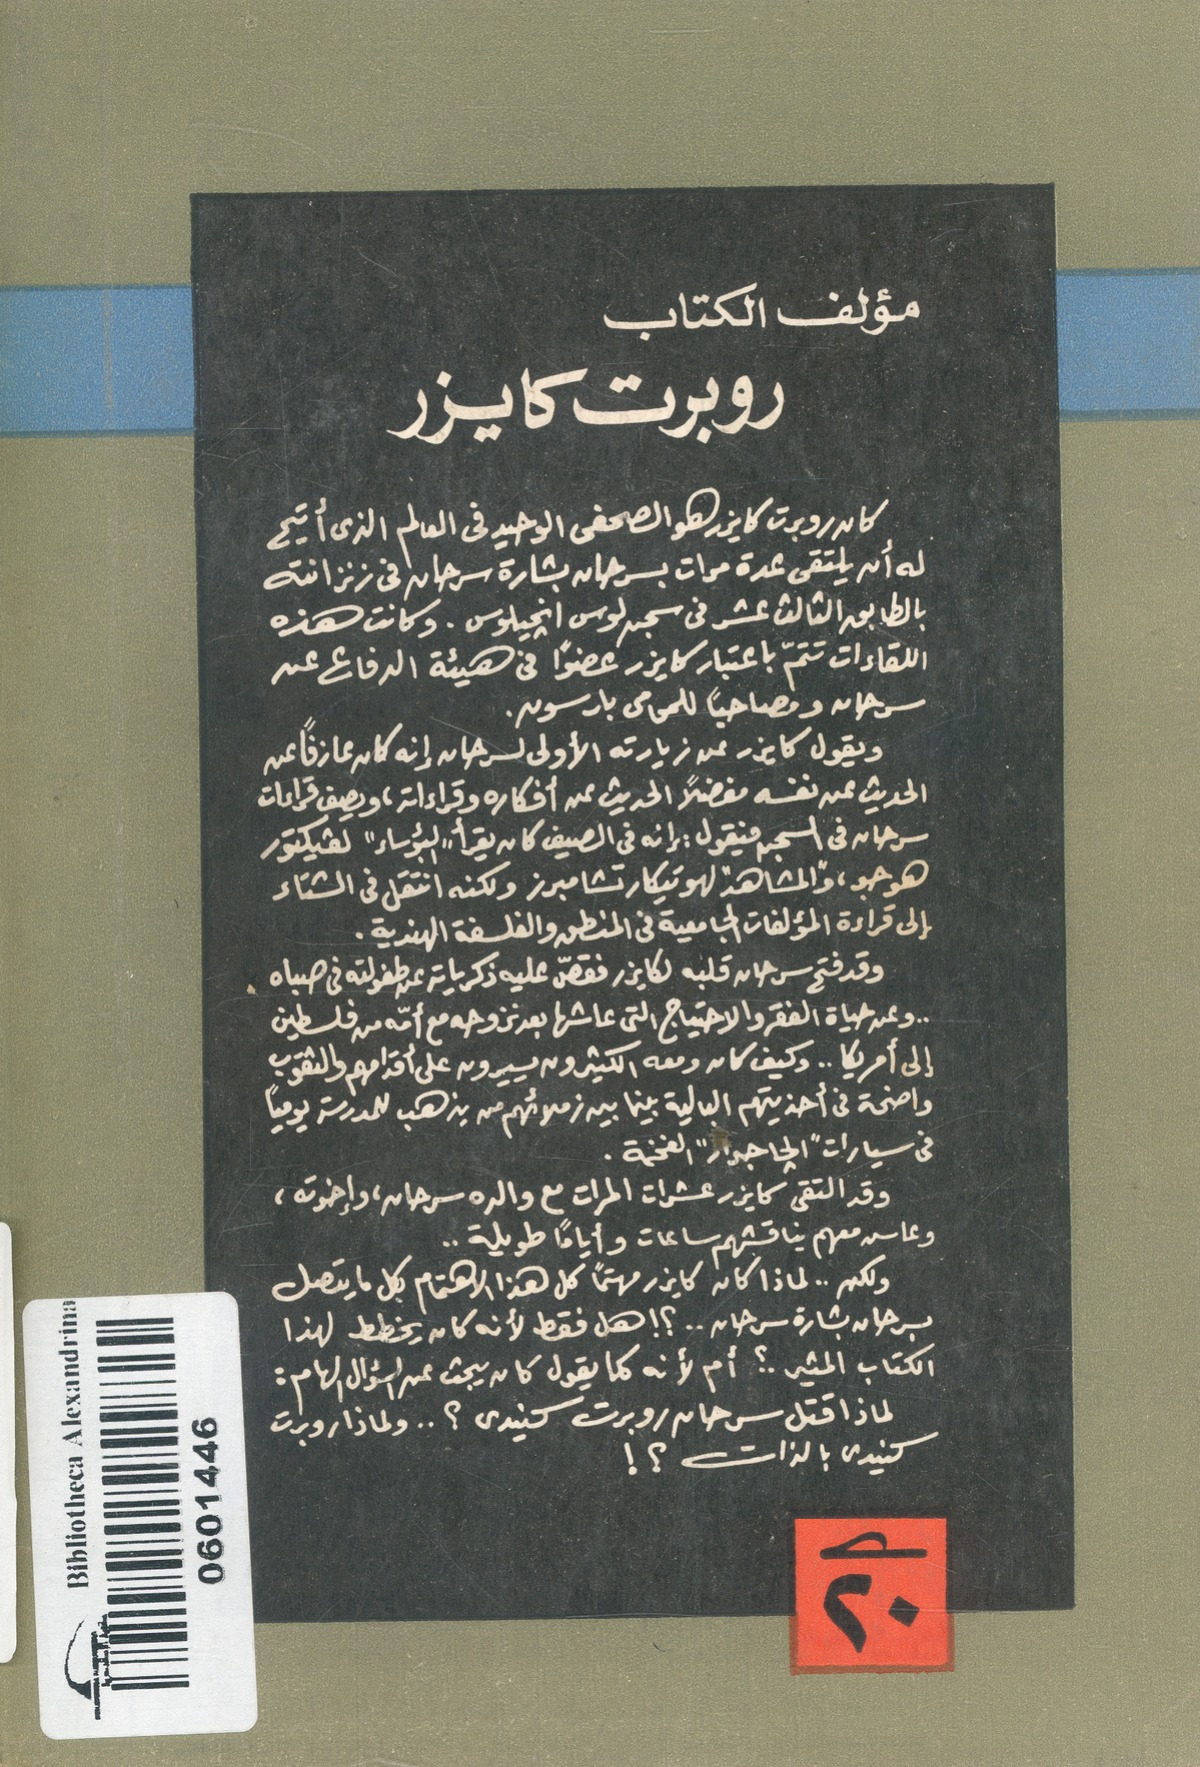 مؤلف الكتاب
روبرت كايزر
كان روبرت كايزر هو الصحفى الوحيد فى العالم الذى أتيح
له أن يلتقى عدة مرات بسرحان بشارة سرحان فى زنزانته
بالطابق الثالث عشر فى سجن لوس انجيلوس . وكانت هذه
اللقاءات تتمّ باعتبار كايزر عضوًا فى هيئة الدفاع عن
سرحان ومصاحبًا للمحامى بارسون .
ويقول كايزر عن زيارته الأولى لسرحان إنه كان عازفًا عن
الحديث عن نفسه مفضلاً الحديث عن أفكاره وقراءاته ، ويصف قراءات
سرحان فى السجن فيقول : إنه فى الصيف كان يقرأ "البؤساء" لفيكتور
هوجو ، و"المشاهد" لهوتيكار تشامبرز ولكنه انتقل فى الشتاء
إلى قراءة المؤلفات الجامعية فى المنطق والفلسفة الهندية .
وقد فتح سرحان قلبه لكايزر فقصّ عليه ذكرياته عن طفولته فى صباه
.. وعن حياة الفقر والاحتياج التى عاشها بعد نزوحه مع أمّه من فلسطين
إلى أمريكا .. وكيف كان ومعه الكثيرون يسيرون على أقدامهم والثقوب
واضحة فى أحذيتهم البالية بينما بين زملائهم من يذهب للمدرسة يوميًا
فى سيارات "الجاجوار" الفخمة .
وقد التقى كايزر عشرات المرات مع والده سرحان ، وإخوته ،
وعاش معهم يناقشهم ساعات وأيامًا طويلة ..
ولكن .. لماذا كان كايزر مهتمًا كل هذا الاهتمام بكل ما يتصل
بسرحان بشارة سرحان .. ؟! هل فقط لأنه كان يخطط لهذا
الكتاب المثير .؟ أم لأنه كما يقول كان يبحث عن السؤال الهام :
لماذا قتل سرحان روبرت كنيدى ؟ .. ولماذا روبرت
كنيدى بالذات ؟ !
٢٠
Bibliotheca Alexandrina
0601446